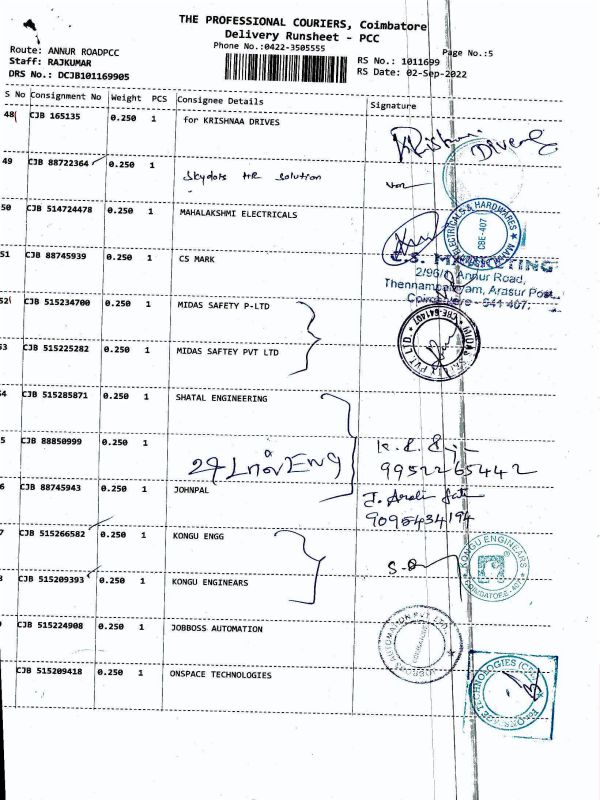 THE PROFESSIONAL COURIERS, Coimbatore
Delivery Runsheet - PCC
Phone No.:0422-3505555
Page No.:5
Route: ANNUR ROADPCC
Staff: RAJKUMAR
DRS No.: DCJB101169905
RS No.: 1011699
RS Date: 02-Sep-2022
S No Consignment No Weight PCS Consignee Details Signature
48 CJB 165135 0.250 1 for KRISHNAA DRIVES
49 CJB 88722364 0.250 1 Skydots HR solution
50 CJB 514724478 0.250 1 MAHALAKSHMI ELECTRICALS
ELECTRICALS & HARDWARES
CBE-407
51 CJB 88745939 0.250 1 CS MARK
C.S. MARKETING
2/96/1, Annur Road,
Thennampalayam, Arasur Post,
Coimbatore - 641 407.
52 CJB 515234700 0.250 1 MIDAS SAFETY P-LTD
MIDAS SAFETY PVT LTD. CBE-641407
53 CJB 515225282 0.250 1 MIDAS SAFTEY PVT LTD
54 CJB 515285871 0.250 1 SHATAL ENGINEERING
5 CJB 88850999 0.250 1
9952265442
6 CJB 88745943 0.250 1 JOHNPAL
9095434194
7 CJB 515266582 0.250 1 KONGU ENGG
KONGU ENGINEARS
COIMBATORE - 407
8 CJB 515209393 0.250 1 KONGU ENGINEARS
CJB 515224908 0.250 1 JOBBOSS AUTOMATION
JOBBOSS AUTOMATION PVT. LTD.
CJB 515209418 0.250 1 ONSPACE TECHNOLOGIES